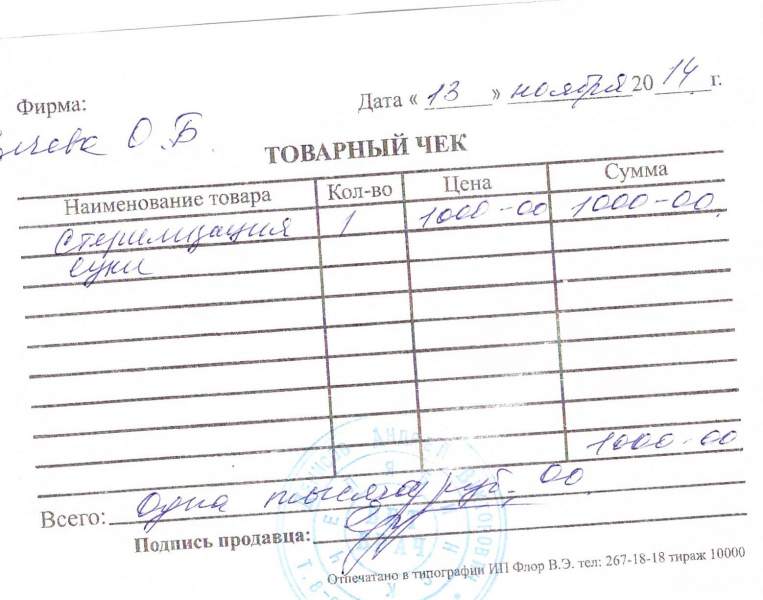 Фирма: Дата « 13 » ноября 2014 г.
О.Б.
ТОВАРНЫЙ ЧЕК
Наименование товара Кол-во Цена Сумма
Стерилизация 1 1000-00 1000-00
суки
1000-00
Всего: Одна тысяча руб. 00
Подпись продавца:
Отпечатано в типографии ИП Флор В.Э. тел: 267-18-18 тираж 10000